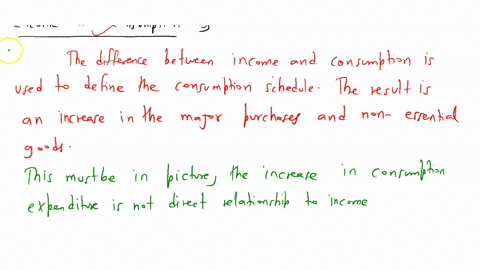 The difference between income and consumption is
used to define the consumption schedule. The result is
an increase in the major purchases and non-essential
goods.
This must be in picture, the increase in consumption
expenditure is not direct relationship to income